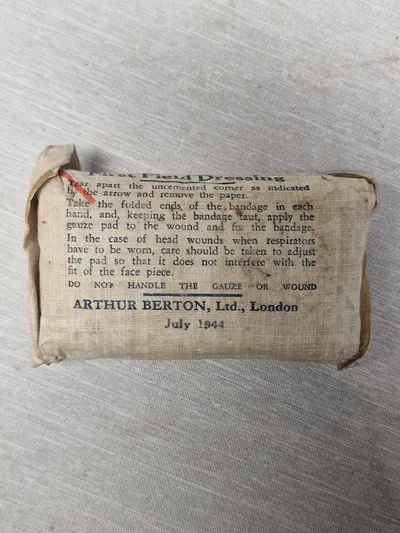 First Field Dressing
Tear apart the uncemented corner as indicated
by the arrow and remove the paper.
Take the folded ends of the bandage in each
hand, and, keeping the bandage taut, apply the
gauze pad to the wound and fix the bandage.
In the case of head wounds when respirators
have to be worn, care should be taken to adjust
the pad so that it does not interfere with the
fit of the face piece.
DO NOT HANDLE THE GAUZE OR WOUND
ARTHUR BERTON, Ltd., London
July 1944